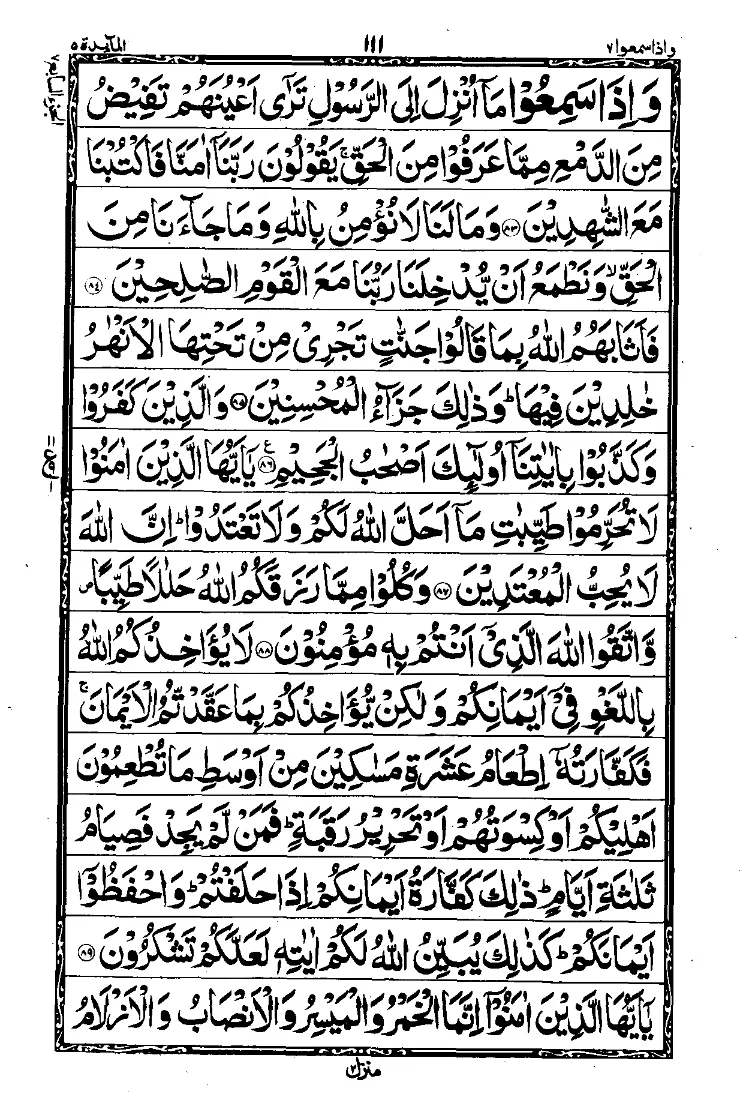 واذا سمعوا ٧
١١١
المآىِٕدة ٥
الجزء السابع
وَاِذَا سَمِعُوْا مَاۤ اُنْزِلَ اِلَى الرَّسُوْلِ تَرٰۤى اَعْيُنَهُمْ تَفِيْضُ
مِنَ الدَّمْعِ مِمَّا عَرَفُوْا مِنَ الْحَقِّ ۚ يَقُوْلُوْنَ رَبَّنَاۤ اٰمَنَّا فَاكْتُبْنَا
مَعَ الشّٰهِدِيْنَ ٨٣ وَمَا لَنَا لَا نُؤْمِنُ بِاللّٰهِ وَمَا جَآءَنَا مِنَ
الْحَقِّ ۙ وَنَطْمَعُ اَنْ يُّدْخِلَنَا رَبُّنَا مَعَ الْقَوْمِ الصّٰلِحِيْنَ ٨٤
فَاَثَابَهُمُ اللّٰهُ بِمَا قَالُوْا جَنّٰتٍ تَجْرِيْ مِنْ تَحْتِهَا الْاَنْهٰرُ
خٰلِدِيْنَ فِيْهَا ؕ وَذٰلِكَ جَزَآءُ الْمُحْسِنِيْنَ ٨٥ وَالَّذِيْنَ كَفَرُوْا
وَكَذَّبُوْا بِاٰيٰتِنَاۤ اُولٰٓىِٕكَ اَصْحٰبُ الْجَحِيْمِ ٨٦ ع يٰۤاَيُّهَا الَّذِيْنَ اٰمَنُوْا
لَا تُحَرِّمُوْا طَيِّبٰتِ مَاۤ اَحَلَّ اللّٰهُ لَكُمْ وَلَا تَعْتَدُوْا ؕ اِنَّ اللّٰهَ
لَا يُحِبُّ الْمُعْتَدِيْنَ ٨٧ وَكُلُوْا مِمَّا رَزَقَكُمُ اللّٰهُ حَلٰلًا طَيِّبًا ۪
وَّاتَّقُوا اللّٰهَ الَّذِيْۤ اَنْتُمْ بِهٖ مُؤْمِنُوْنَ ٨٨ لَا يُؤَاخِذُكُمُ اللّٰهُ
بِاللَّغْوِ فِيْۤ اَيْمَانِكُمْ وَلٰكِنْ يُّؤَاخِذُكُمْ بِمَا عَقَّدْتُّمُ الْاَيْمَانَ ۚ
فَكَفَّارَتُهٗۤ اِطْعَامُ عَشَرَةِ مَسٰكِيْنَ مِنْ اَوْسَطِ مَا تُطْعِمُوْنَ
اَهْلِيْكُمْ اَوْ كِسْوَتُهُمْ اَوْ تَحْرِيْرُ رَقَبَةٍ ؕ فَمَنْ لَّمْ يَجِدْ فَصِيَامُ
ثَلٰثَةِ اَيَّامٍ ؕ ذٰلِكَ كَفَّارَةُ اَيْمَانِكُمْ اِذَا حَلَفْتُمْ ؕ وَاحْفَظُوْۤا
اَيْمَانَكُمْ ؕ كَذٰلِكَ يُبَيِّنُ اللّٰهُ لَكُمْ اٰيٰتِهٖ لَعَلَّكُمْ تَشْكُرُوْنَ ٨٩
يٰۤاَيُّهَا الَّذِيْنَ اٰمَنُوْۤا اِنَّمَا الْخَمْرُ وَالْمَيْسِرُ وَالْاَنْصَابُ وَالْاَزْلَامُ
منزل ٢